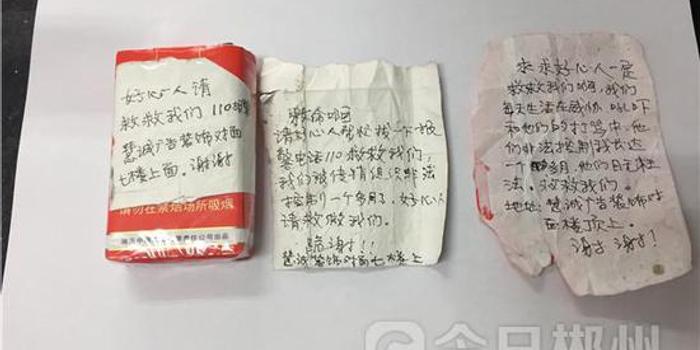 好心人请
救救我们 110报警
慧诚广告装饰对面
七楼上面。谢谢
请勿在禁烟场所吸烟
救命啊
请好心人帮忙找一下报
警电话110救救我们,
我们被传销组织非法
控制一个多月了。好心人
请救救我们。
谢谢!!!
慧诚装饰对面七楼上
求求好心人一定
救救我们啊,我们
每天生活在威胁
和他们的打骂中,他
们非法控制我长达
一个多月,他们目无法
法。救救我们。
地址:慧诚广告装饰对
面楼顶上。
谢谢谢谢!
今日郴州